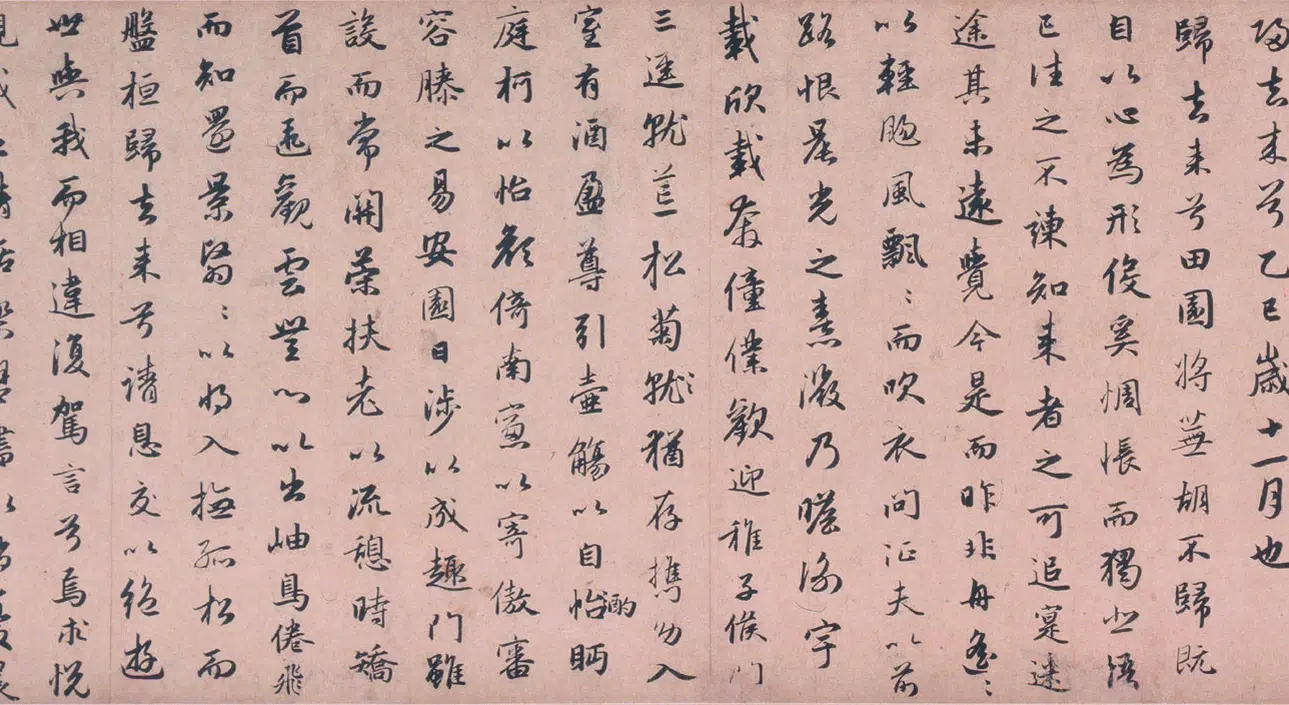 歸去来兮乙巳歲十一月也
歸去来兮田園將蕪胡不歸既
自以心為形役奚惆悵而獨悲悟
已往之不諫知来者之可追寔迷
途其未遠覺今是而昨非舟遥〻
以輕颺風飄〻而吹衣問征夫以前
路恨晨光之熹微乃瞻衡宇
載欣載奔僮僕歡迎稚子候門
三逕就荒松菊就〻猶存攜幼入
室有酒盈尊引壺觴以自怡酌眄
庭柯以怡顔倚南窓以寄傲審
容膝之易安園日涉以成趣門雖
設而常開策扶老以流憩時矯
首而遐觀雲無心以出岫鳥倦飛
而知還景翳〻以將入撫孤松而
盤桓歸去来兮請息交以絶遊
世與我而相違復駕言兮焉求悦